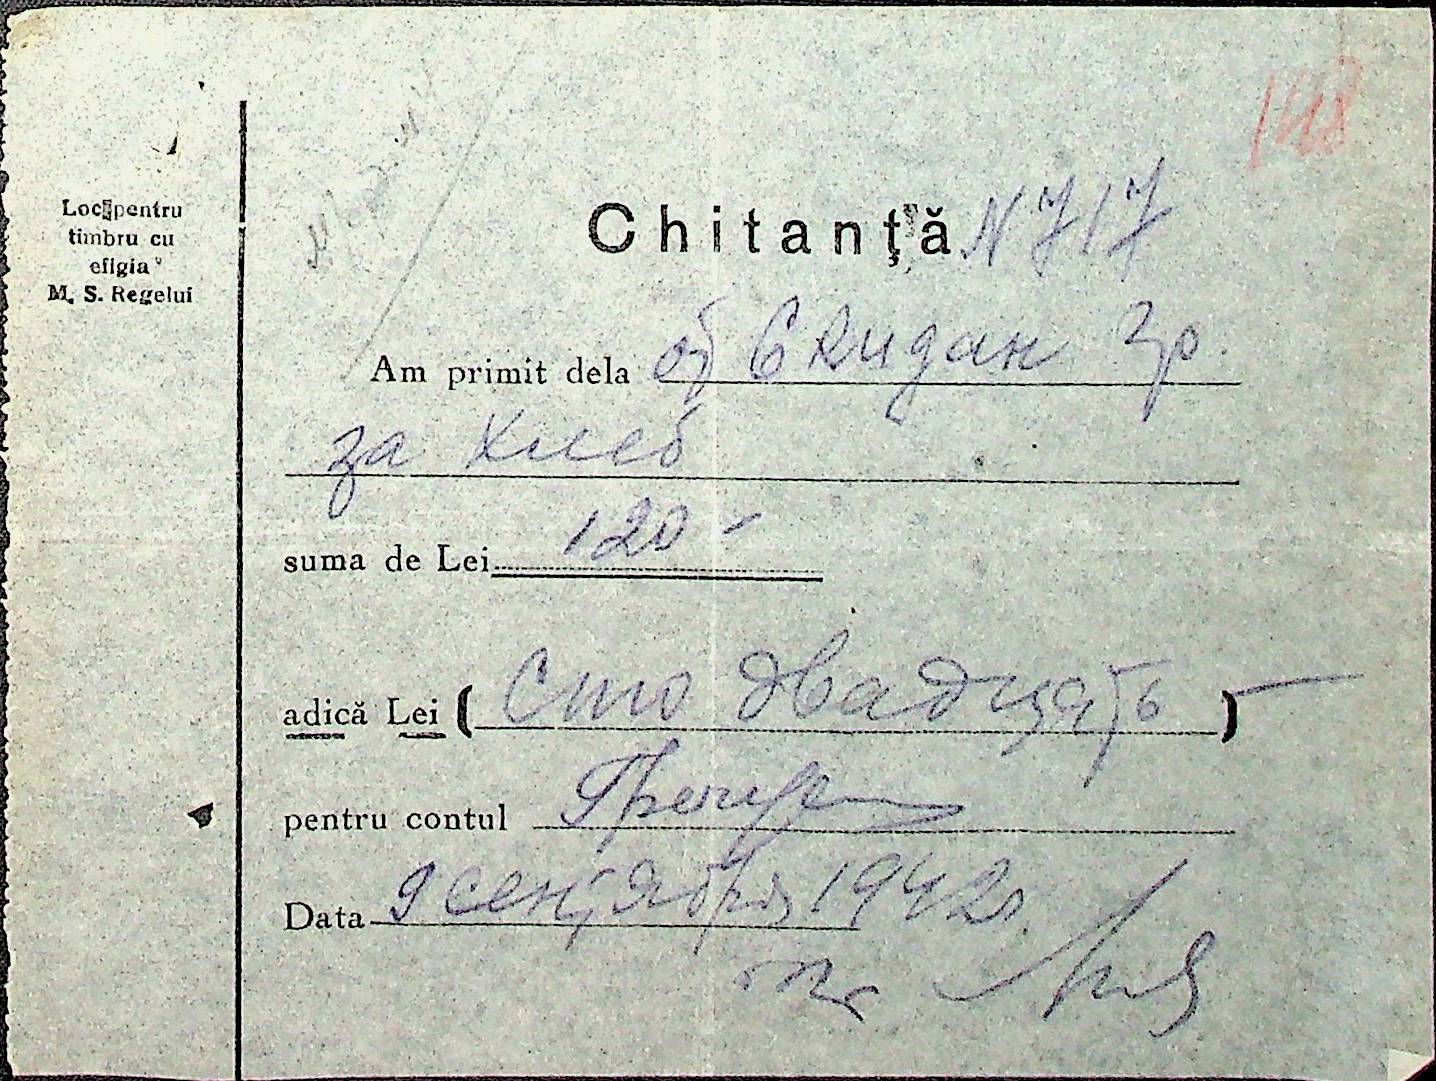 148
Loc pentru
timbru cu
efigia
M. S. Regelui
Chitanţă N 717
Am primit dela от Скидан Гр.
за хлеб
suma de Lei 120 -
adică Lei (Сто двадцать)
pentru contul
Data 9 сентября 1942г.